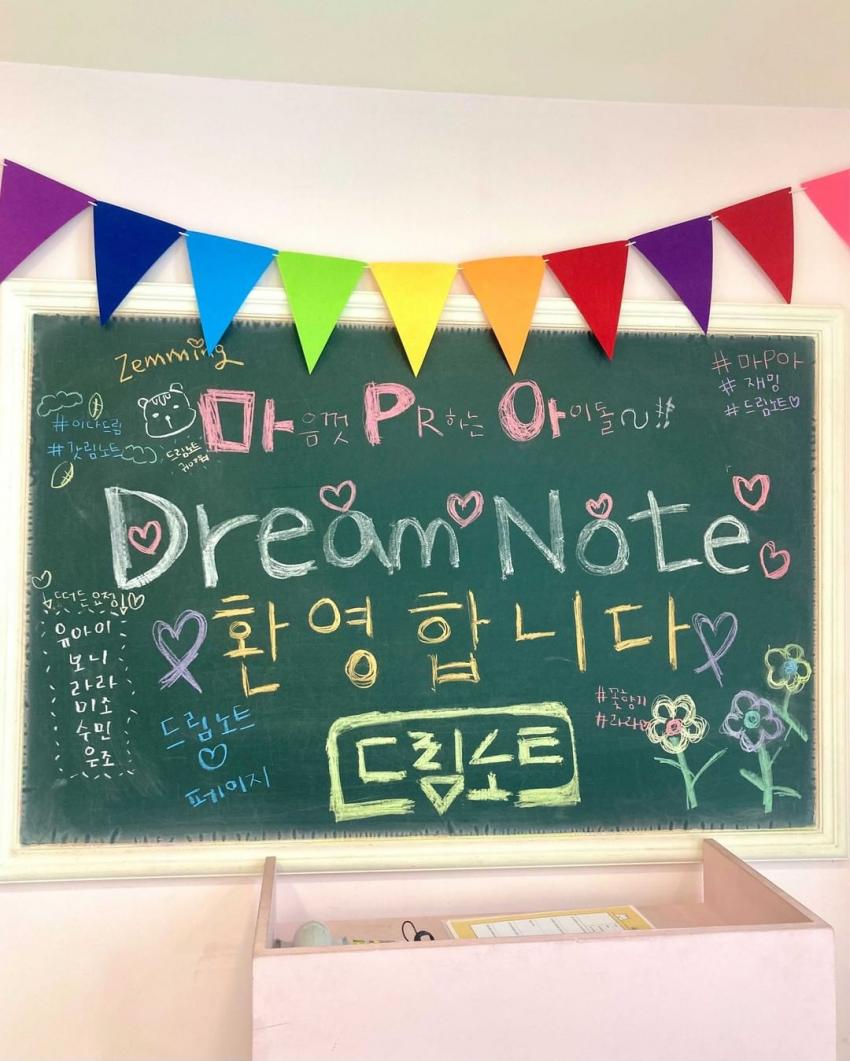 Zemming
#마PO아
#재밍
#드림노트♡
#이다드림
#갓림노트
드림노트
마음껏 PR하는 아이돌~!!
Dream Note
환영합니다
유아이
보니
라라
미소
수민
은조
드림노트
♡
페이지
드림노트
#꽃향기
#라라